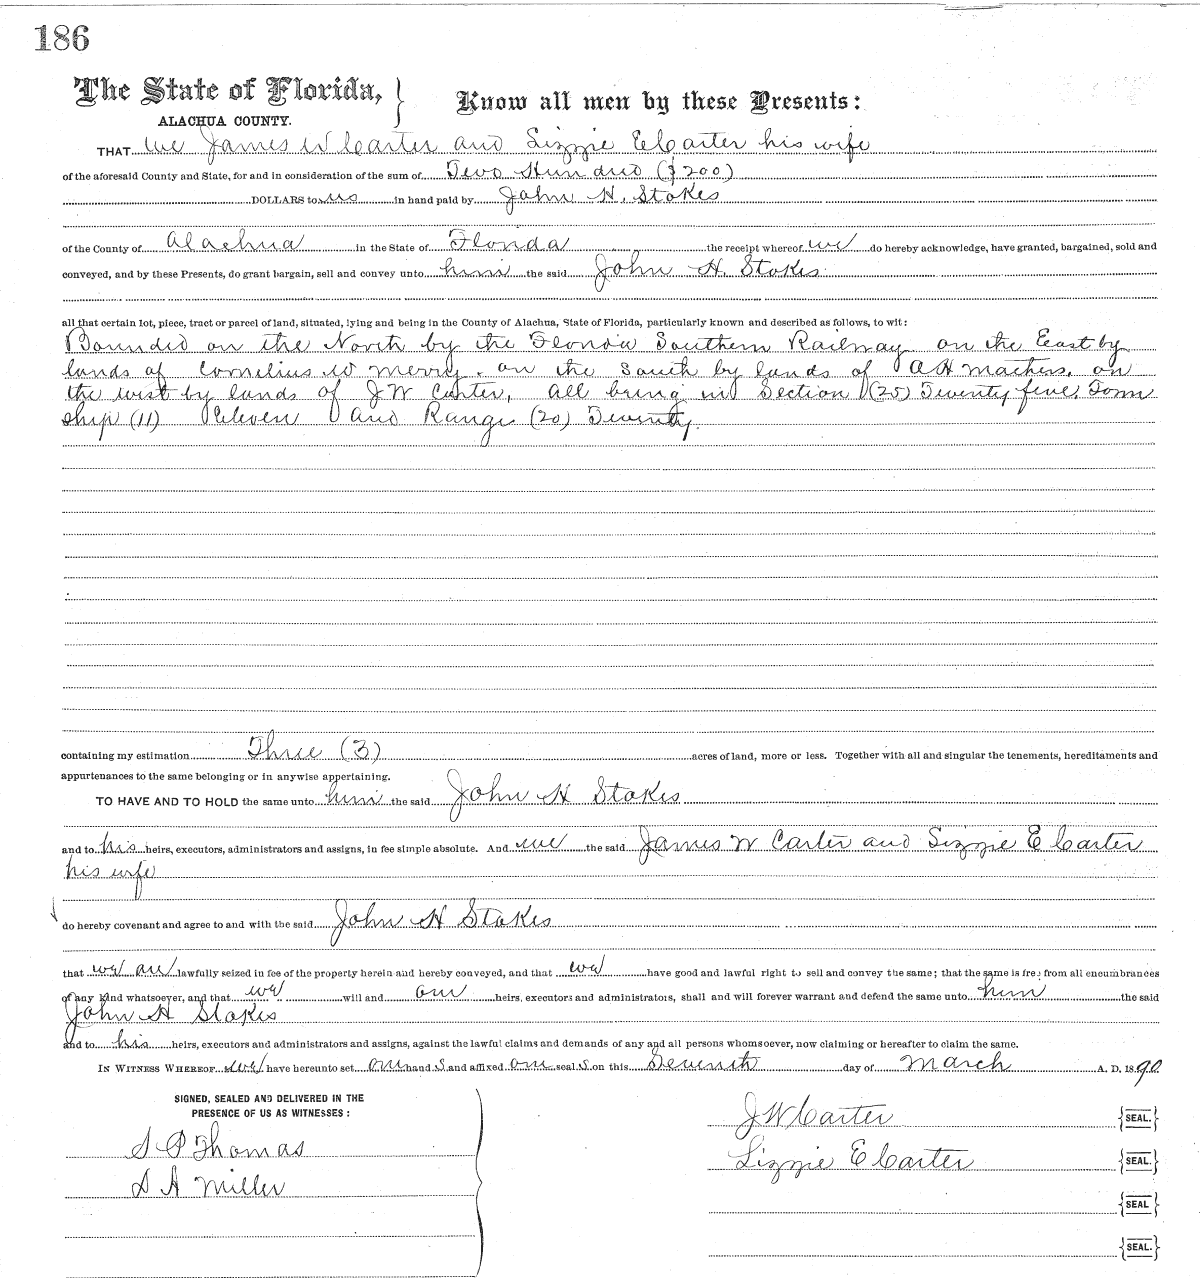 186
The State of Florida,
ALACHUA COUNTY.
Know all men by these Presents:
THAT we James W Carter and Lizzie E Carter his wife
of the aforesaid County and State, for and in consideration of the sum of Two Hundred ($200)
DOLLARS to us in hand paid by John H. Stokes
of the County of Alachua in the State of Florida the receipt whereof we do hereby acknowledge, have granted, bargained, sold and
conveyed, and by these Presents, do grant bargain, sell and convey unto him the said John H. Stokes
all that certain lot, piece, tract or parcel of land, situated, lying and being in the County of Alachua, State of Florida, particularly known and described as follows, to wit:
Bounded on the North by the Florida Southern Railway on the East by
lands of Cornelius W Merry. on the South by lands of A H Mathers, on
the west by lands of J W Carter, all being in Section (25) Twenty five, Town
ship (11) Eleven and Range (20) Twenty.
containing my estimation Three (3) acres of land, more or less. Together with all and singular the tenements, hereditaments and
appurtenances to the same belonging or in anywise appertaining.
TO HAVE AND TO HOLD the same unto him the said John H Stokes
and to his heirs, executors, administrators and assigns, in fee simple absolute. And we the said James W Carter and Lizzie E Carter
his wife
do hereby covenant and agree to and with the said John H Stokes
that we are lawfully seized in fee of the property herein and hereby conveyed, and that we have good and lawful right to sell and convey the same; that the same is free from all encumbrances
of any kind whatsoever, and that we will and our heirs, executors and administrators, shall and will forever warrant and defend the same unto him the said
John H Stokes
and to his heirs, executors and administrators and assigns, against the lawful claims and demands of any and all persons whomsoever, now claiming or hereafter to claim the same.
IN WITNESS WHEREOF we have hereunto set our hand s and affixed our seal s on this Seventh day of March A. D. 1890
SIGNED, SEALED AND DELIVERED IN THE
PRESENCE OF US AS WITNESSES:
S P Thomas
S A Miller
J W Carter SEAL.
Lizzie E Carter SEAL.
SEAL
SEAL.